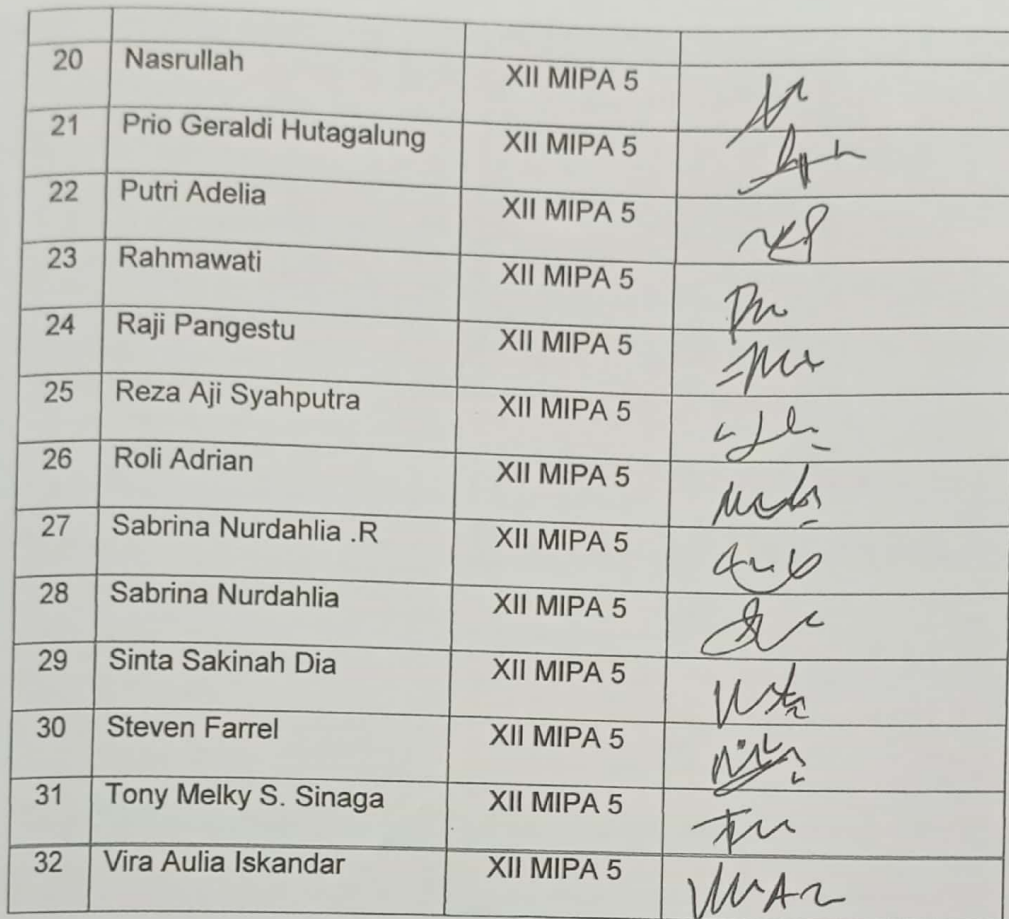 20 Nasrullah XII MIPA 5
21 Prio Geraldi Hutagalung XII MIPA 5
22 Putri Adelia XII MIPA 5
23 Rahmawati XII MIPA 5
24 Raji Pangestu XII MIPA 5
25 Reza Aji Syahputra XII MIPA 5
26 Roli Adrian XII MIPA 5
27 Sabrina Nurdahlia .R XII MIPA 5
28 Sabrina Nurdahlia XII MIPA 5
29 Sinta Sakinah Dia XII MIPA 5
30 Steven Farrel XII MIPA 5
31 Tony Melky S. Sinaga XII MIPA 5
32 Vira Aulia Iskandar XII MIPA 5